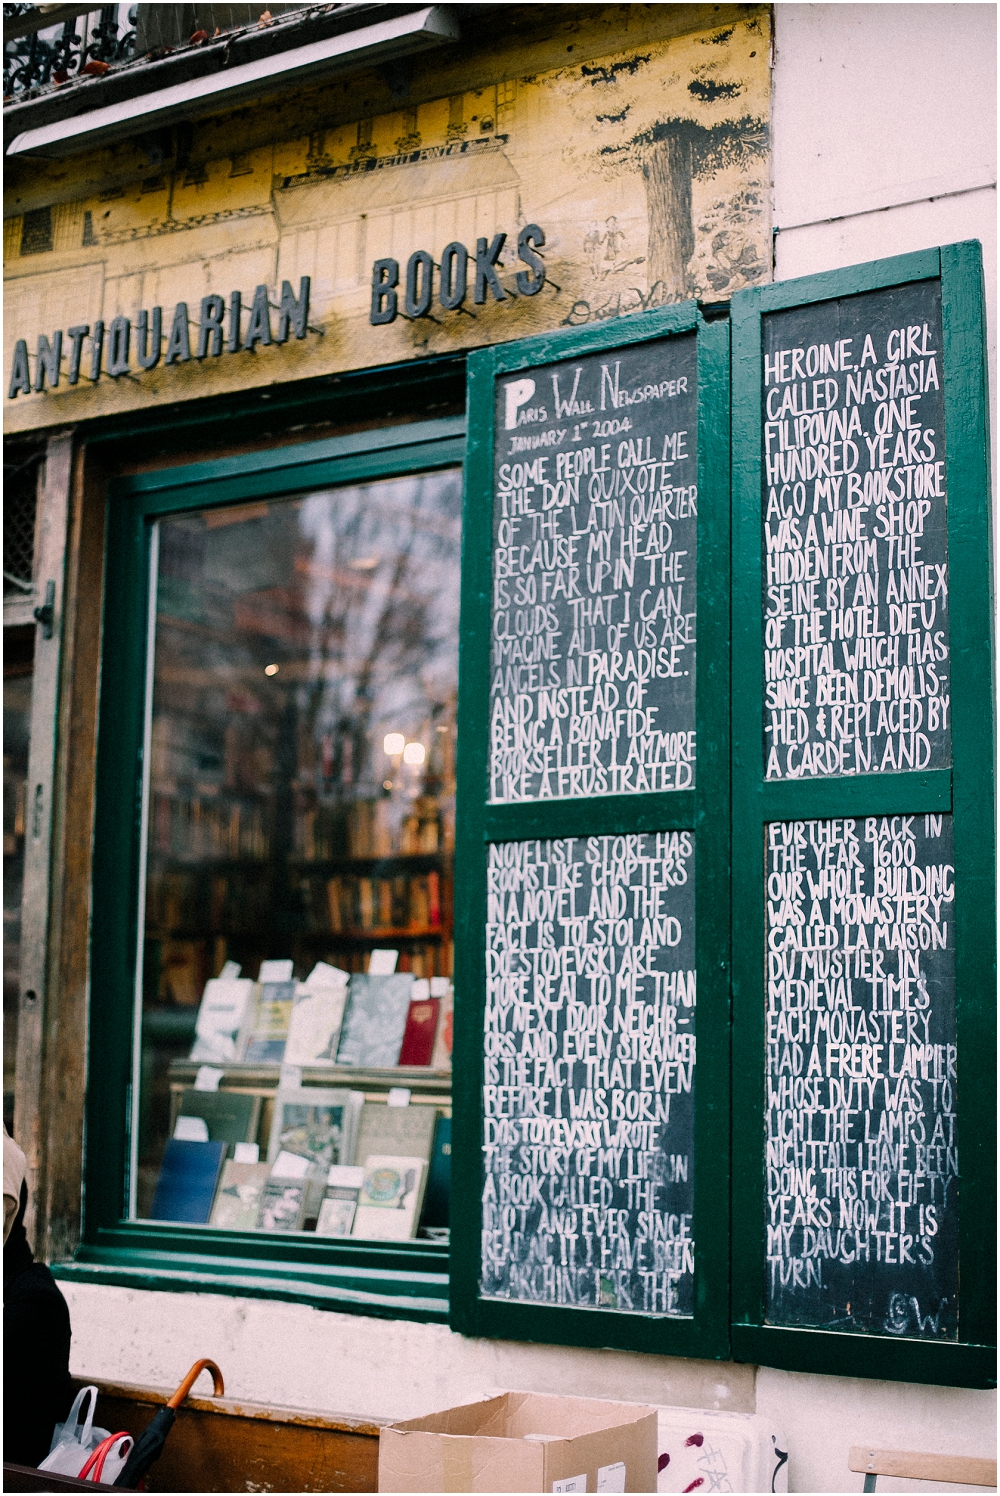 LE PETIT PONT
ANTIQUARIAN BOOKS
PARIS WALL NEWSPAPER
JANUARY 1ST 2004
SOME PEOPLE CALL ME
THE DON QUIXOTE
OF THE LATIN QUARTER
BECAUSE MY HEAD
IS SO FAR UP IN THE
CLOUDS THAT I CAN
IMAGINE ALL OF US ARE
ANGELS IN PARADISE.
AND INSTEAD OF
BEING A BONAFIDE
BOOKSELLER I AM MORE
LIKE A FRUSTRATED
NOVELIST STORE HAS
ROOMS LIKE CHAPTERS
IN A NOVEL AND THE
FACT IS TOLSTOI AND
DOESTOYEVSKI ARE
MORE REAL TO ME THAN
MY NEXT DOOR NEIGHB-
ORS AND EVEN STRANGER
IS THE FACT THAT EVEN
BEFORE I WAS BORN
DOSTOYEVSKI WROTE
THE STORY OF MY LIFE IN
A BOOK CALLED 'THE
IDIOT AND EVER SINCE
READING IT I HAVE BEEN
SEARCHING FOR THE
HEROINE, A GIRL
CALLED NASTASIA
FILIPOVNA. ONE
HUNDRED YEARS
AGO MY BOOKSTORE
WAS A WINE SHOP
HIDDEN FROM THE
SEINE BY AN ANNEX
OF THE HOTEL DIEU
HOSPITAL WHICH HAS
SINCE BEEN DEMOLIS-
-HED & REPLACED BY
A GARDEN. AND
FURTHER BACK IN
THE YEAR 1600
OUR WHOLE BUILDING
WAS A MONASTERY
CALLED LA MAISON
DU MUSTIER. IN
MEDIEVAL TIMES
EACH MONASTERY
HAD A FRERE LAMPIER
WHOSE DUTY WAS TO
LIGHT THE LAMPS AT
NIGHTFALL I HAVE BEEN
DOING THIS FOR FIFTY
YEARS NOW IT IS
MY DAUGHTER'S
TURN.
GW.